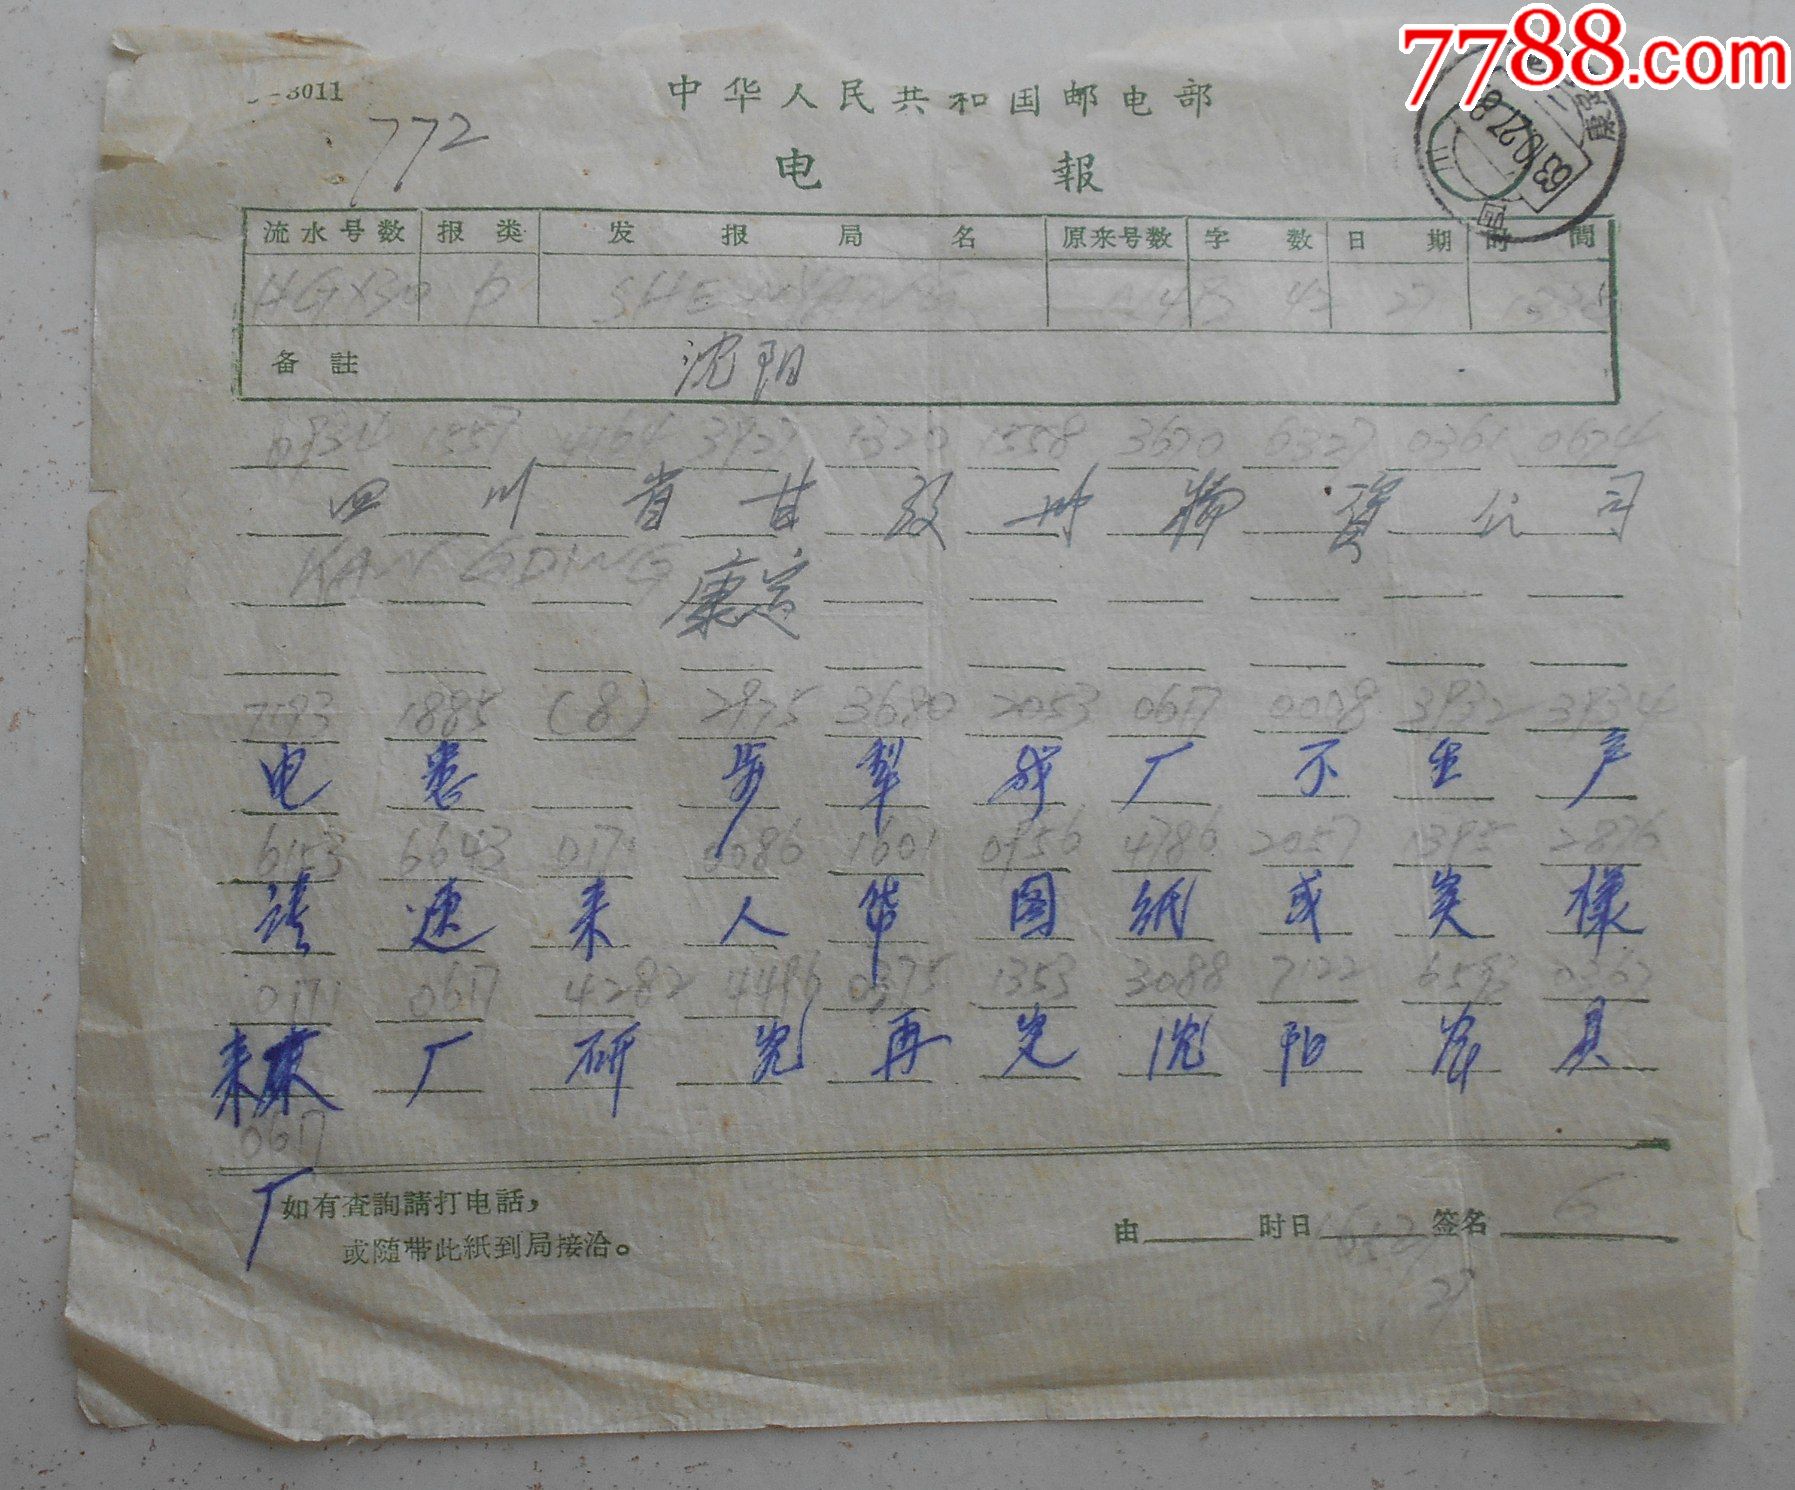 7788.com
3011
中华人民共和国邮电部
772
电報
63.10.27.8
流水号数 报类 发报局名 原来号数 字数 日期 时間
HGX30 P SHENYANG 42 27
备註 沈阳
0934 1557 4164 3927 1320 1558 3670 6327 0361 0674
四川省甘孜州物資公司
KANGDING 康定
7193 1885 (8) 2975 3680 2053 0617 0008 3932 3934
电悉 步犁我厂不生产
6153 6643 0171 0086 1601 0956 4786 2057 1395 2876
请速来人带图纸或实樣
0171 0617 4282 4496 0375 1353 3088 7122 6593 0367
来厂研究再定沈阳农具
0617
厂
如有査詢請打电話，
或随带此紙到局接洽。
由 时日 签名
27